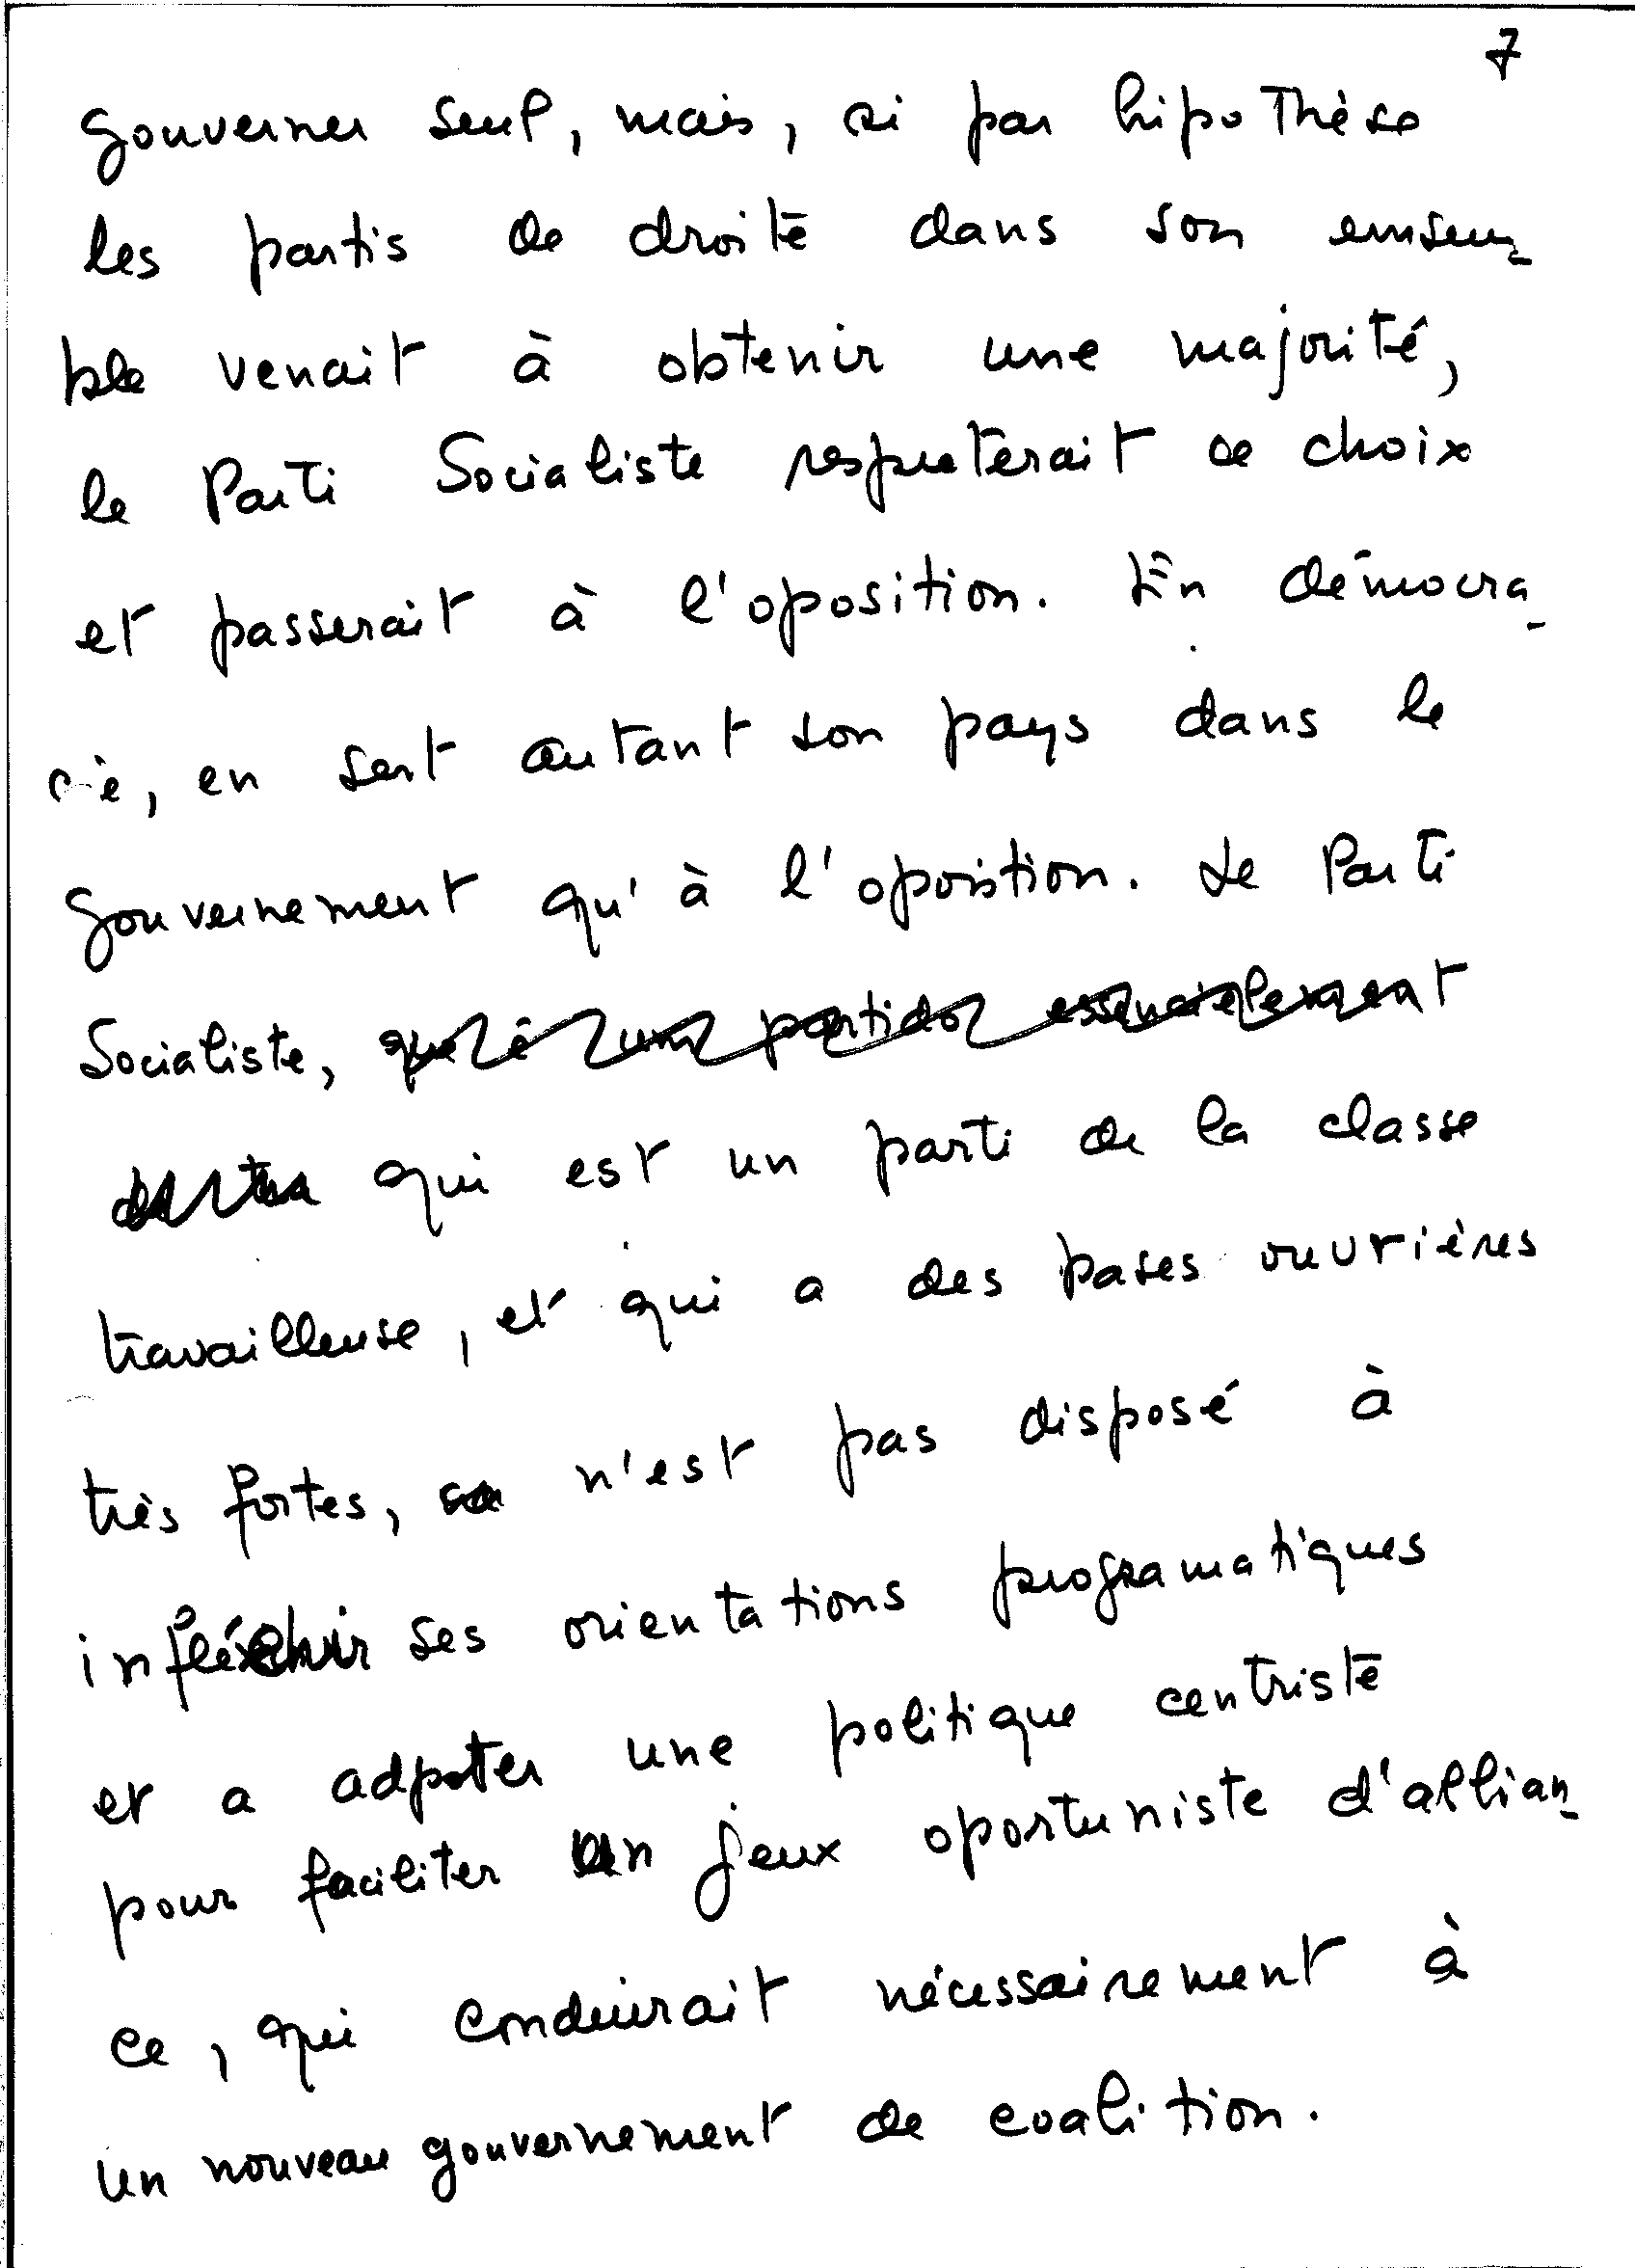 7
gouverner seul, mais, si par hipothèse
les partis de droite dans son emsem-
ble venait à obtenir une majorité,
le Parti Socialiste respecterait ce choix
et passerait à l'oposition. En démocra-
cie, en sert autant son pays dans le
gouvernement qu'à l'oposition. Le Parti
Socialiste, que é um partido essencialement
qui est un parti de la classe
travailleuse, et qui a des bases ouvrières
très fortes, n'est pas disposé à
infléchir ses orientations programatiques
et a adpoter une politique centriste
pour faciliter un jeux oportuniste d'allian-
ce, qui conduirait nécessairement à
un nouveau gouvernement de coalition.